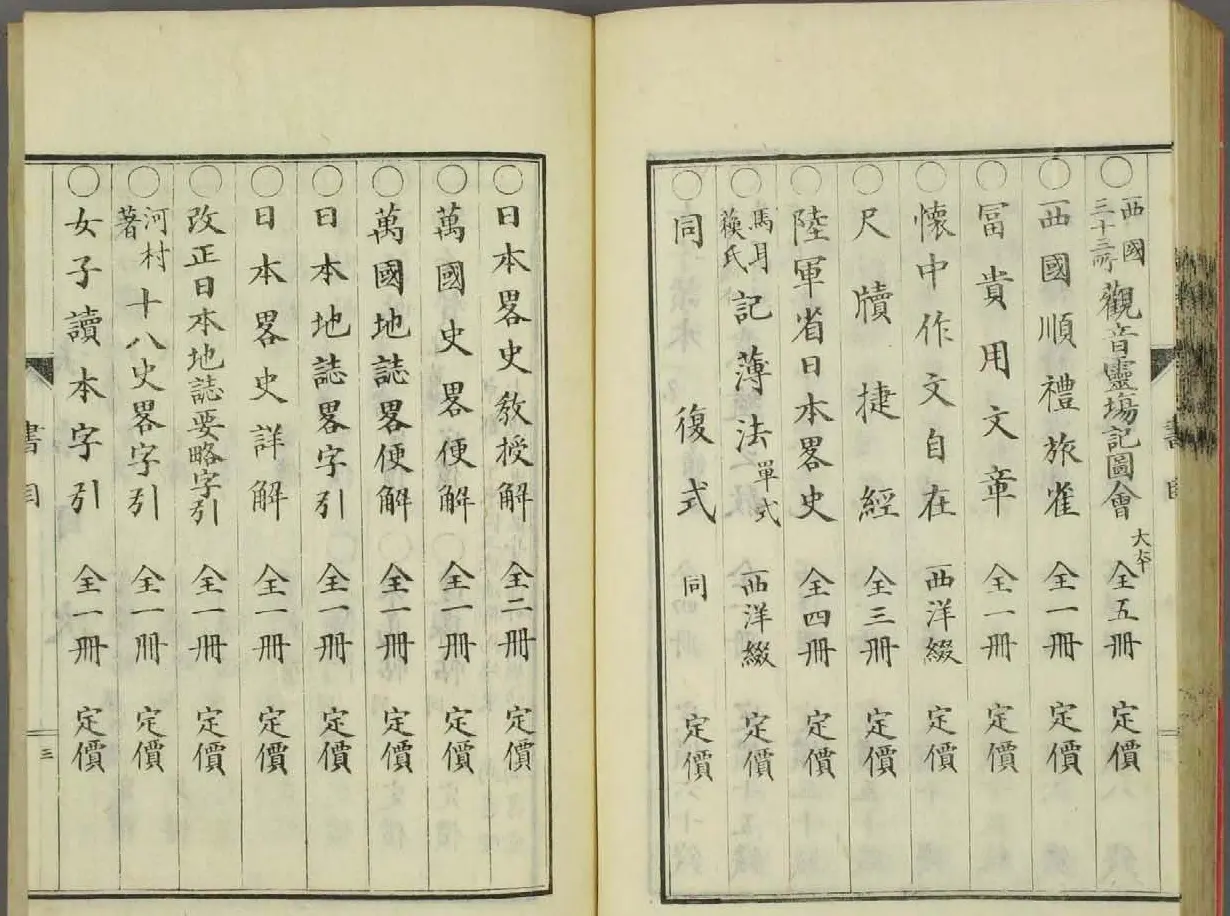 西國三十三所觀音靈場記圖會 大本 全五冊 定價
西國順禮旅雀 全一冊 定價
冨貴用文章 全一冊 定價
懷中作文自在 西洋綴 定價
尺牘捷經 全三冊 定價
陸軍省日本畧史 全四冊 定價
馬耳蘓氏記薄法單式 西洋綴 定價
同 復式 同 定價
日本畧史敎授解 全二冊 定價
萬國史畧便解 全一冊 定價
萬國地誌畧便解 全一冊 定價
日本地誌畧字引 全一冊 定價
日本畧史詳解 全一冊 定價
改正日本地誌要略字引 全一冊 定價
河村著十八史畧字引 全一冊 定價
女子讀本字引 全一冊 定價
書目
三